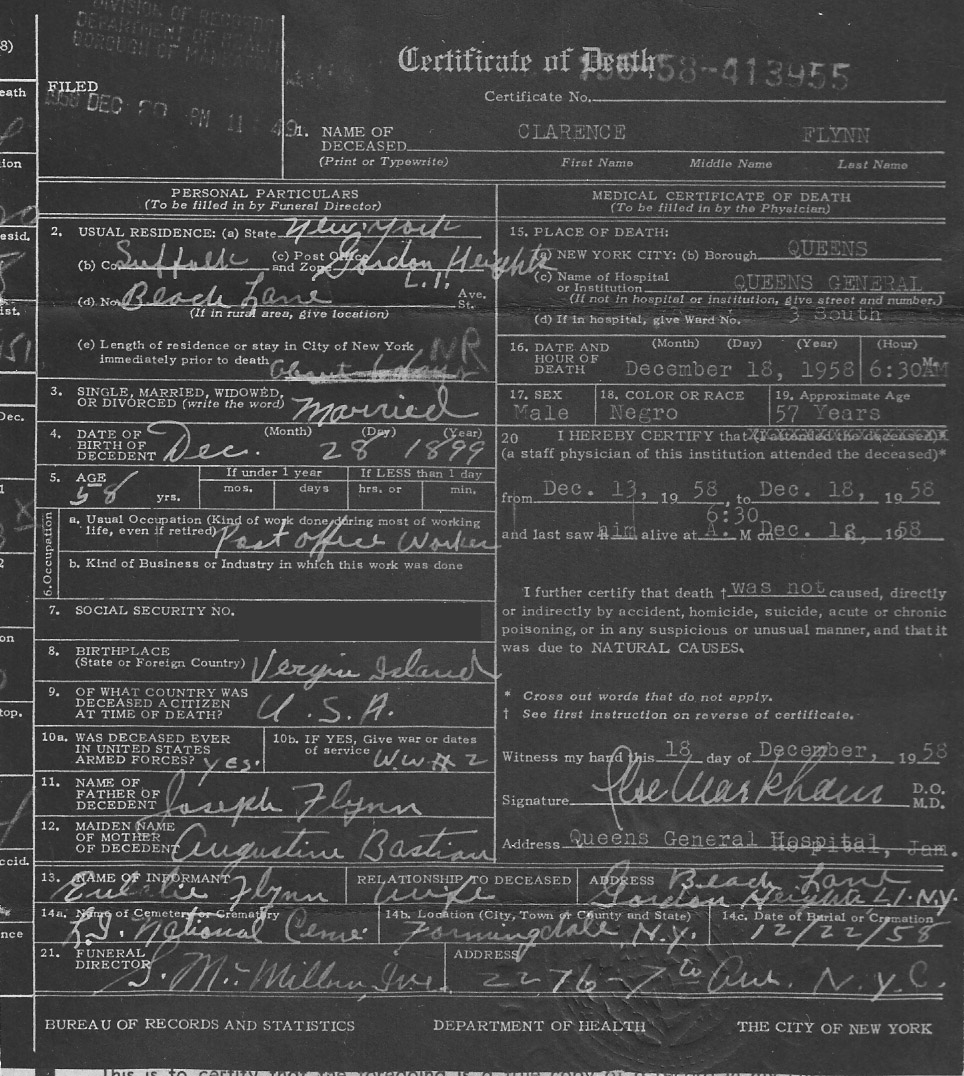 DIVISION OF RECORDS
DEPARTMENT OF HEALTH
BOROUGH OF
8)
eath
ion
esid.
ist.
Dec.
on
top.
ccid.
nce
FILED
1958 DEC 20 AM 11:49
Certificate of Death
156-58-413955
Certificate No.
1. NAME OF DECEASED CLARENCE FLYNN
(Print or Typewrite) First Name Middle Name Last Name
PERSONAL PARTICULARS
(To be filled in by Funeral Director)
2. USUAL RESIDENCE: (a) State New York
(b) Co. Suffolk (c) Post Office and Zone Gordon Heights L.I.
(d) No. Beach Lane Ave. St.
(If in rural area, give location)
(e) Length of residence or stay in City of New York
immediately prior to death NR
3. SINGLE, MARRIED, WIDOWED,
OR DIVORCED (write the word) Married
4. DATE OF BIRTH OF DECEDENT (Month) (Day) (Year)
Dec. 28 1899
5. AGE 58 yrs.
If under 1 year If LESS than 1 day
mos. days hrs. or min.
6. Occupation
a. Usual Occupation (Kind of work done during most of working
life, even if retired) Post office Worker
b. Kind of Business or Industry in which this work was done
7. SOCIAL SECURITY NO.
8. BIRTHPLACE
(State or Foreign Country) Vergin Island
9. OF WHAT COUNTRY WAS
DECEASED A CITIZEN
AT TIME OF DEATH? U.S.A.
10a. WAS DECEASED EVER
IN UNITED STATES
ARMED FORCES? yes.
10b. IF YES, Give war or dates
of service W.W # 2
11. NAME OF
FATHER OF
DECEDENT Joseph Flynn
12. MAIDEN NAME
OF MOTHER
OF DECEDENT Augustine Bastian
MEDICAL CERTIFICATE OF DEATH
(To be filled in by the Physician)
15. PLACE OF DEATH:
(a) NEW YORK CITY: (b) Borough QUEENS
(c) Name of Hospital
or Institution QUEENS GENERAL
(If not in hospital or institution, give street and number.)
(d) If in hospital, give Ward No. 3 South
16. DATE AND HOUR OF DEATH (Month) (Day) (Year) (Hour)
December 18, 1958 6:30AM
17. SEX Male
18. COLOR OR RACE Negro
19. Approximate Age 57 Years
20 I HEREBY CERTIFY that (I attended the deceased)*
(a staff physician of this institution attended the deceased)*
from Dec. 13, 1958, to Dec. 18, 1958
6:30
and last saw him alive at A. M on Dec. 18, 1958
I further certify that death † was not caused, directly
or indirectly by accident, homicide, suicide, acute or chronic
poisoning, or in any suspicious or unusual manner, and that it
was due to NATURAL CAUSES.
* Cross out words that do not apply.
† See first instruction on reverse of certificate.
Witness my hand this 18 day of December, 1958
Signature Ilse Markham D.O. M.D.
Address Queens General Hospital, Jam.
13. NAME OF INFORMANT Eulalie Flynn RELATIONSHIP TO DECEASED wife ADDRESS Beach Lane
Gordon Heights L.I. N.Y.
14a. Name of Cemetery or Crematory 14b. Location (City, Town or County and State) 14c. Date of Burial or Cremation
L.I. National Ceme Farmingdale, N.Y. 12/22/58
21. FUNERAL DIRECTOR J. McMillan, Inc. ADDRESS 2276-7th Ave. N.Y.C.
BUREAU OF RECORDS AND STATISTICS DEPARTMENT OF HEALTH THE CITY OF NEW YORK